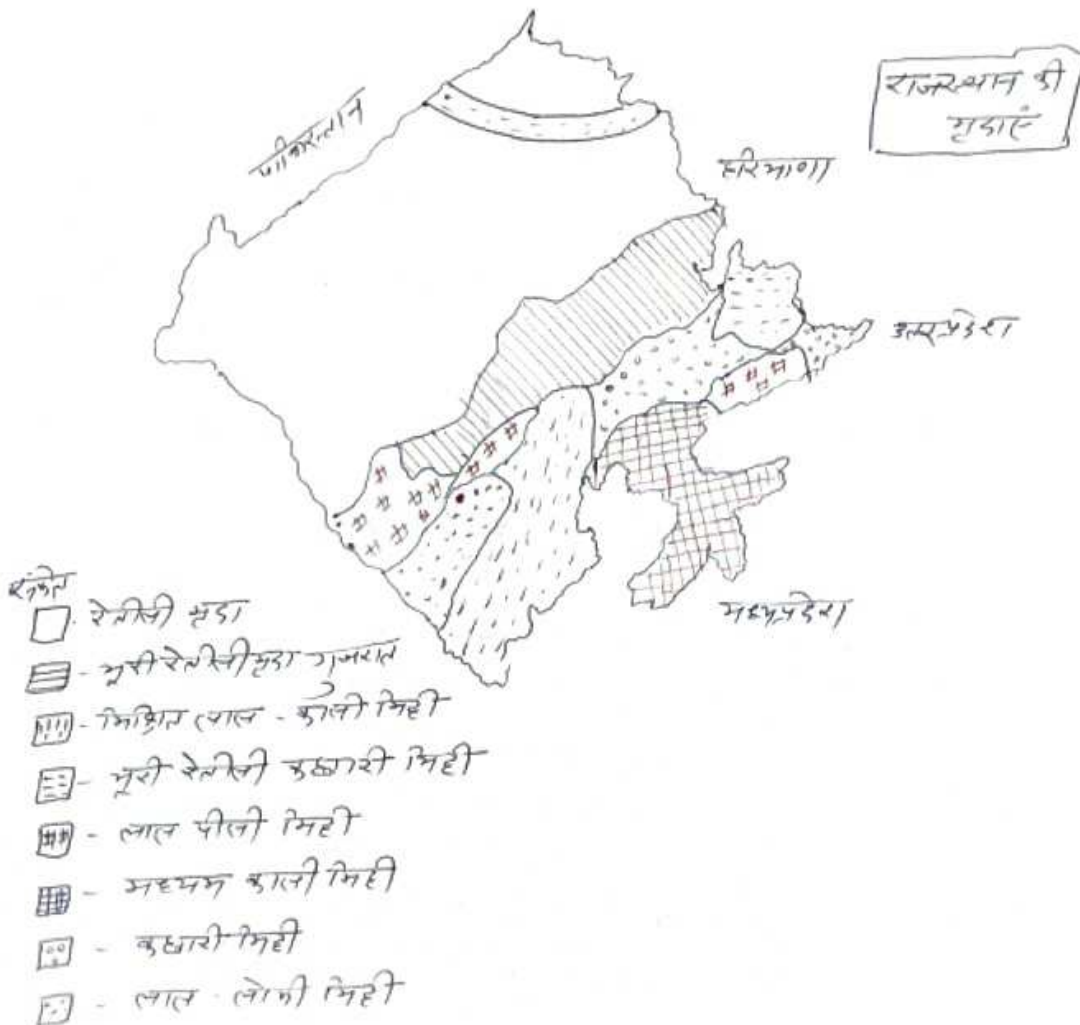 राजस्थान की
मृदाएं
पाकिस्तान
हरियाणा
उत्तरप्रदेश
मध्यप्रदेश
गुजरात
संकेत
रेतीली मृदा
- भूरी रेतीली मृदा
- मिश्रित लाल - काली मिट्टी
- भूरी रेतीली कछारी मिट्टी
- लाल पीली मिट्टी
- मध्यम काली मिट्टी
- कछारी मिट्टी
- लाल - लोमी मिट्टी